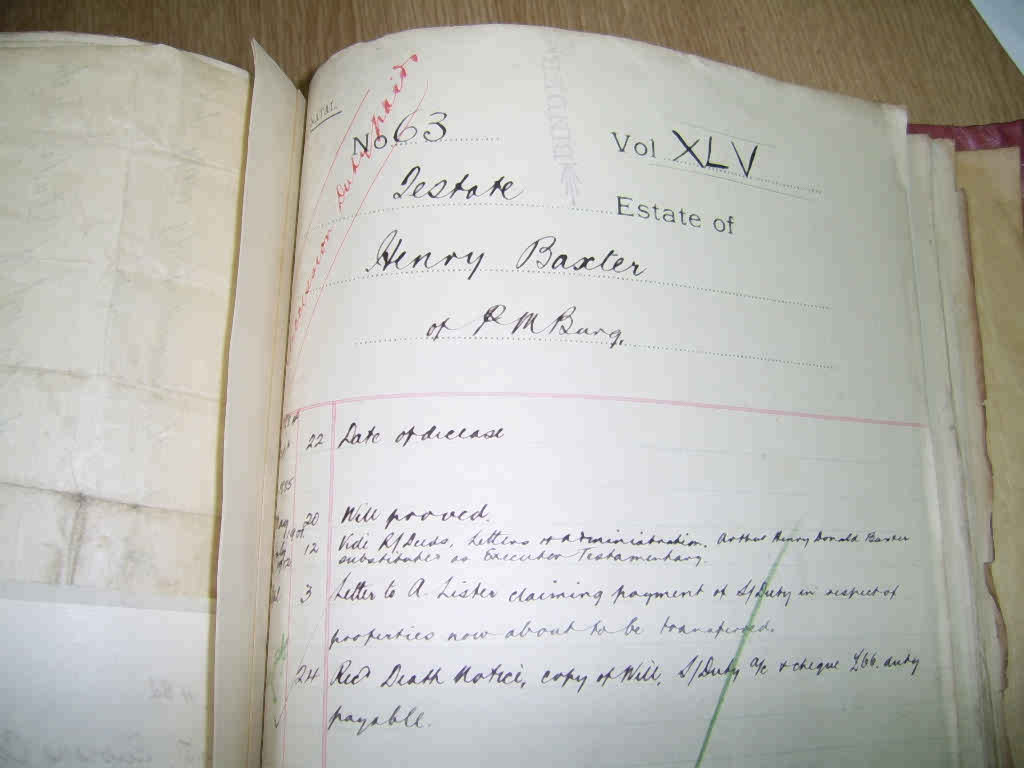 NATAL.
Duty paid
No 63
Vol XLV
BINDER
Testate Estate of
Henry Baxter
of P M Burg.
22 Date of decease
20 Will proved.
12 Vide R/Deeds, Letters of administration, Arthur Henry Donald Baxter
substituted as Executor Testamentary.
3 Letter to A. Lister claiming payment of S/Duty in respect of
properties now about to be transferred.
24 Recd Death Notice, copy of Will, S/Duty a/c & cheque £66. duty
payable.